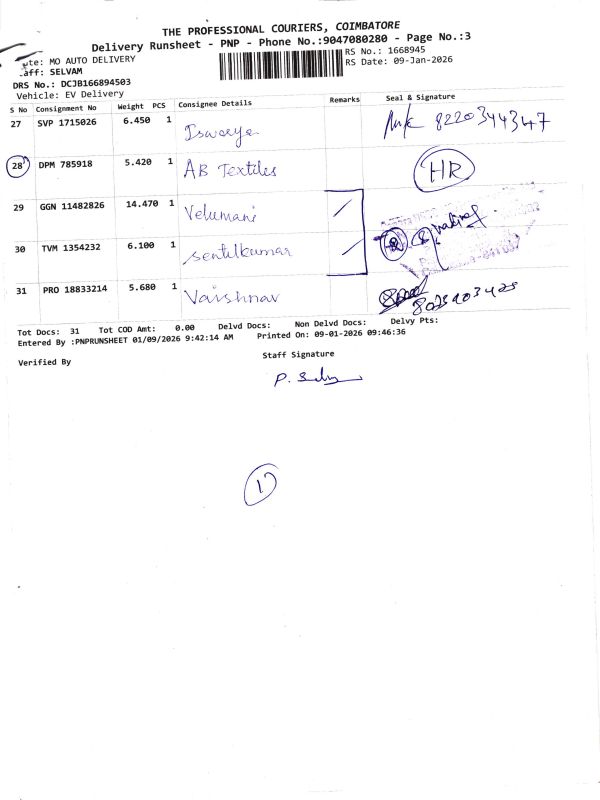 THE PROFESSIONAL COURIERS, COIMBATORE
Delivery Runsheet - PNP - Phone No.:9047080280 - Page No.:3
ute: MO AUTO DELIVERY
RS No.: 1668945
aff: SELVAM
RS Date: 09-Jan-2026
DRS No.: DCJB166894503
Vehicle: EV Delivery
S No Consignment No Weight PCS Consignee Details Remarks Seal & Signature
27 SVP 1715026 6.450 1 Iswarya 8220344347
28 DPM 785918 5.420 1 AB Textiles HR
29 GGN 11482826 14.470 1 Velumani
30 TVM 1354232 6.100 1 Sentilkumar
31 PRO 18833214 5.680 1 Vaishnav
Tot Docs: 31 Tot COD Amt: 0.00 Delvd Docs: Non Delvd Docs: Delvy Pts:
Entered By :PNPRUNSHEET 01/09/2026 9:42:14 AM Printed On: 09-01-2026 09:46:36
Verified By
Staff Signature
P. Selva